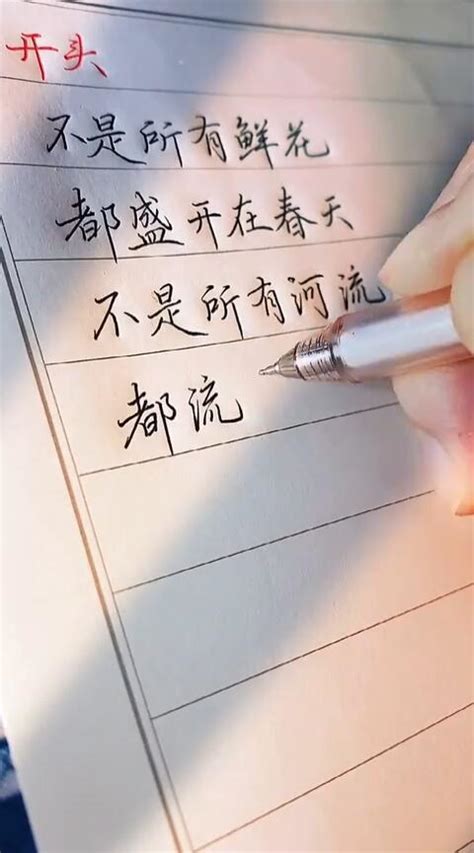 开头
不是所有鲜花
都盛开在春天
不是所有河流
都流